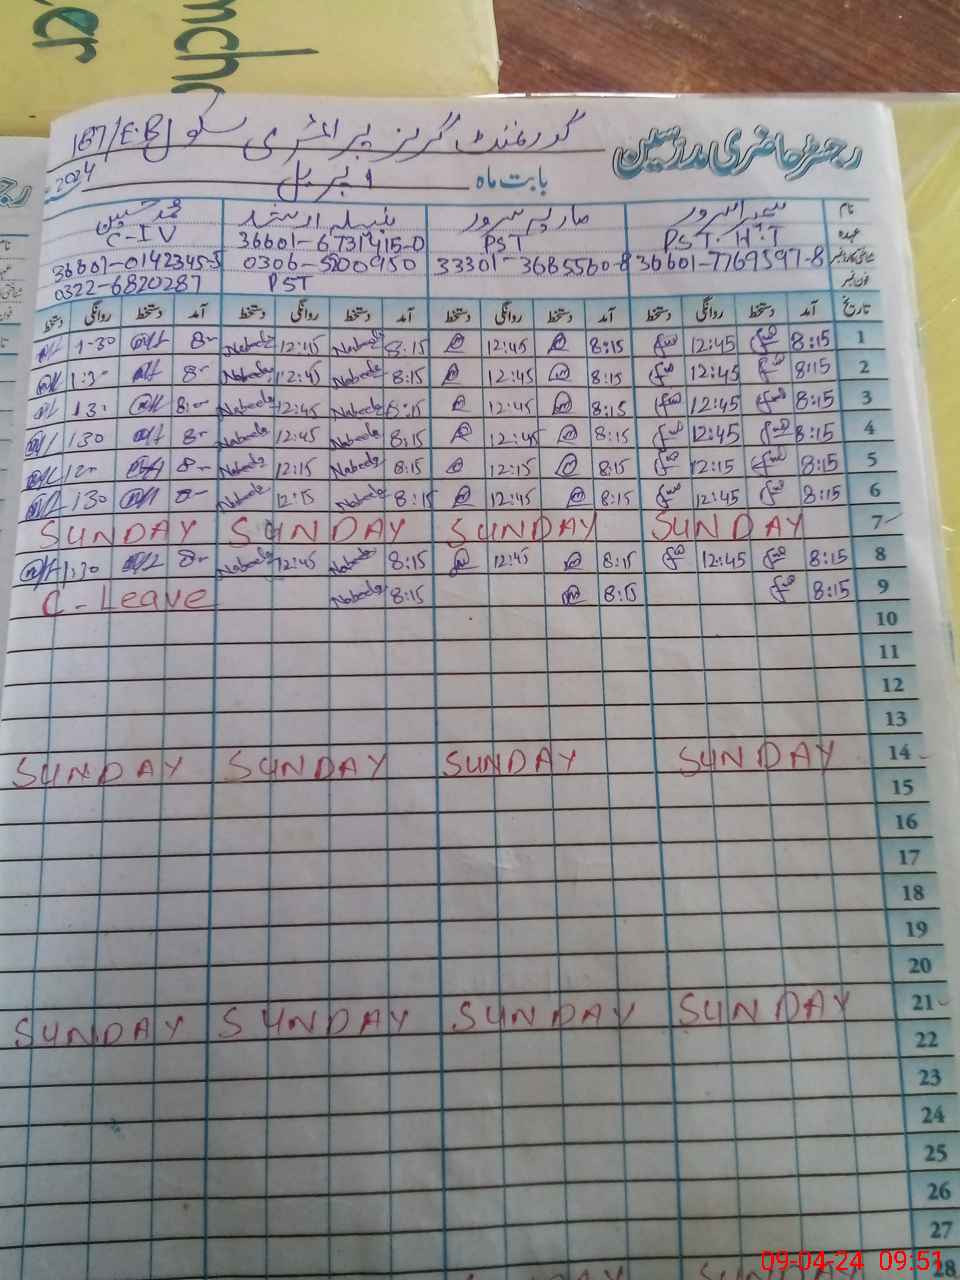 رجسٹر حاضری مدرسین
گورنمنٹ گرلز پرائمری سکول 187/E.B
بابت ماہ اپریل 2024
نام سمیرا سرور ماریہ سرور نبیلہ ارشد محمد حسین
عہدہ PST. H.T PST 36601-6731415-0 C-IV
36601-7769597-8 33301-3685560-8 0306-5200950 36601-0142345-5
فون نمبر PST 0322-6820287
تاریخ آمد دستخط روانگی دستخط آمد دستخط روانگی دستخط آمد دستخط روانگی دستخط آمد دستخط روانگی دستخط
1 8:15 12:45 8:15 12:45 8:15 Nabeela 12:45 Nabeela 8- 1-30
2 8:15 12:45 8:15 12:45 8:15 Nabeela 12:45 Nabeela 8- 1:3-
3 8:15 12:45 8:15 12:45 8:15 Nabeela 12:45 Nabeela 8:- 13-
4 8:15 12:45 8:15 12:45 8:15 Nabeela 12:45 Nabeela 8- 130
5 8:15 12:15 8:15 12:15 8:15 Nabeela 12:15 Nabeela 8- 12-
6 8:15 12:45 8:15 12:45 8:15 Nabeela 12:15 Nabeela 8- 130
7 SUNDAY SUNDAY SUNDAY SUNDAY
8 8:15 12:45 8:15 12:45 8:15 Nabeela 12:45 Nabeela 8- 1:30
9 8:15 8:15 8:15 Nabeela C-Leave
10
11
12
13
14 SUNDAY SUNDAY SUNDAY SUNDAY
15
16
17
18
19
20
21 SUNDAY SUNDAY SUNDAY SUNDAY
22
23
24
25
26
27
28
09-04-24 09:51